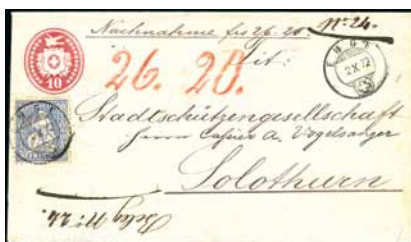 Nachnahme frs 26. 20.
No. 24.
26. 20.
Tit:
10
2 X 72
Stadtschützengesellschaft
Herrn Cassier A. Vogelsanger
Solothurn
Beleg No. 24.